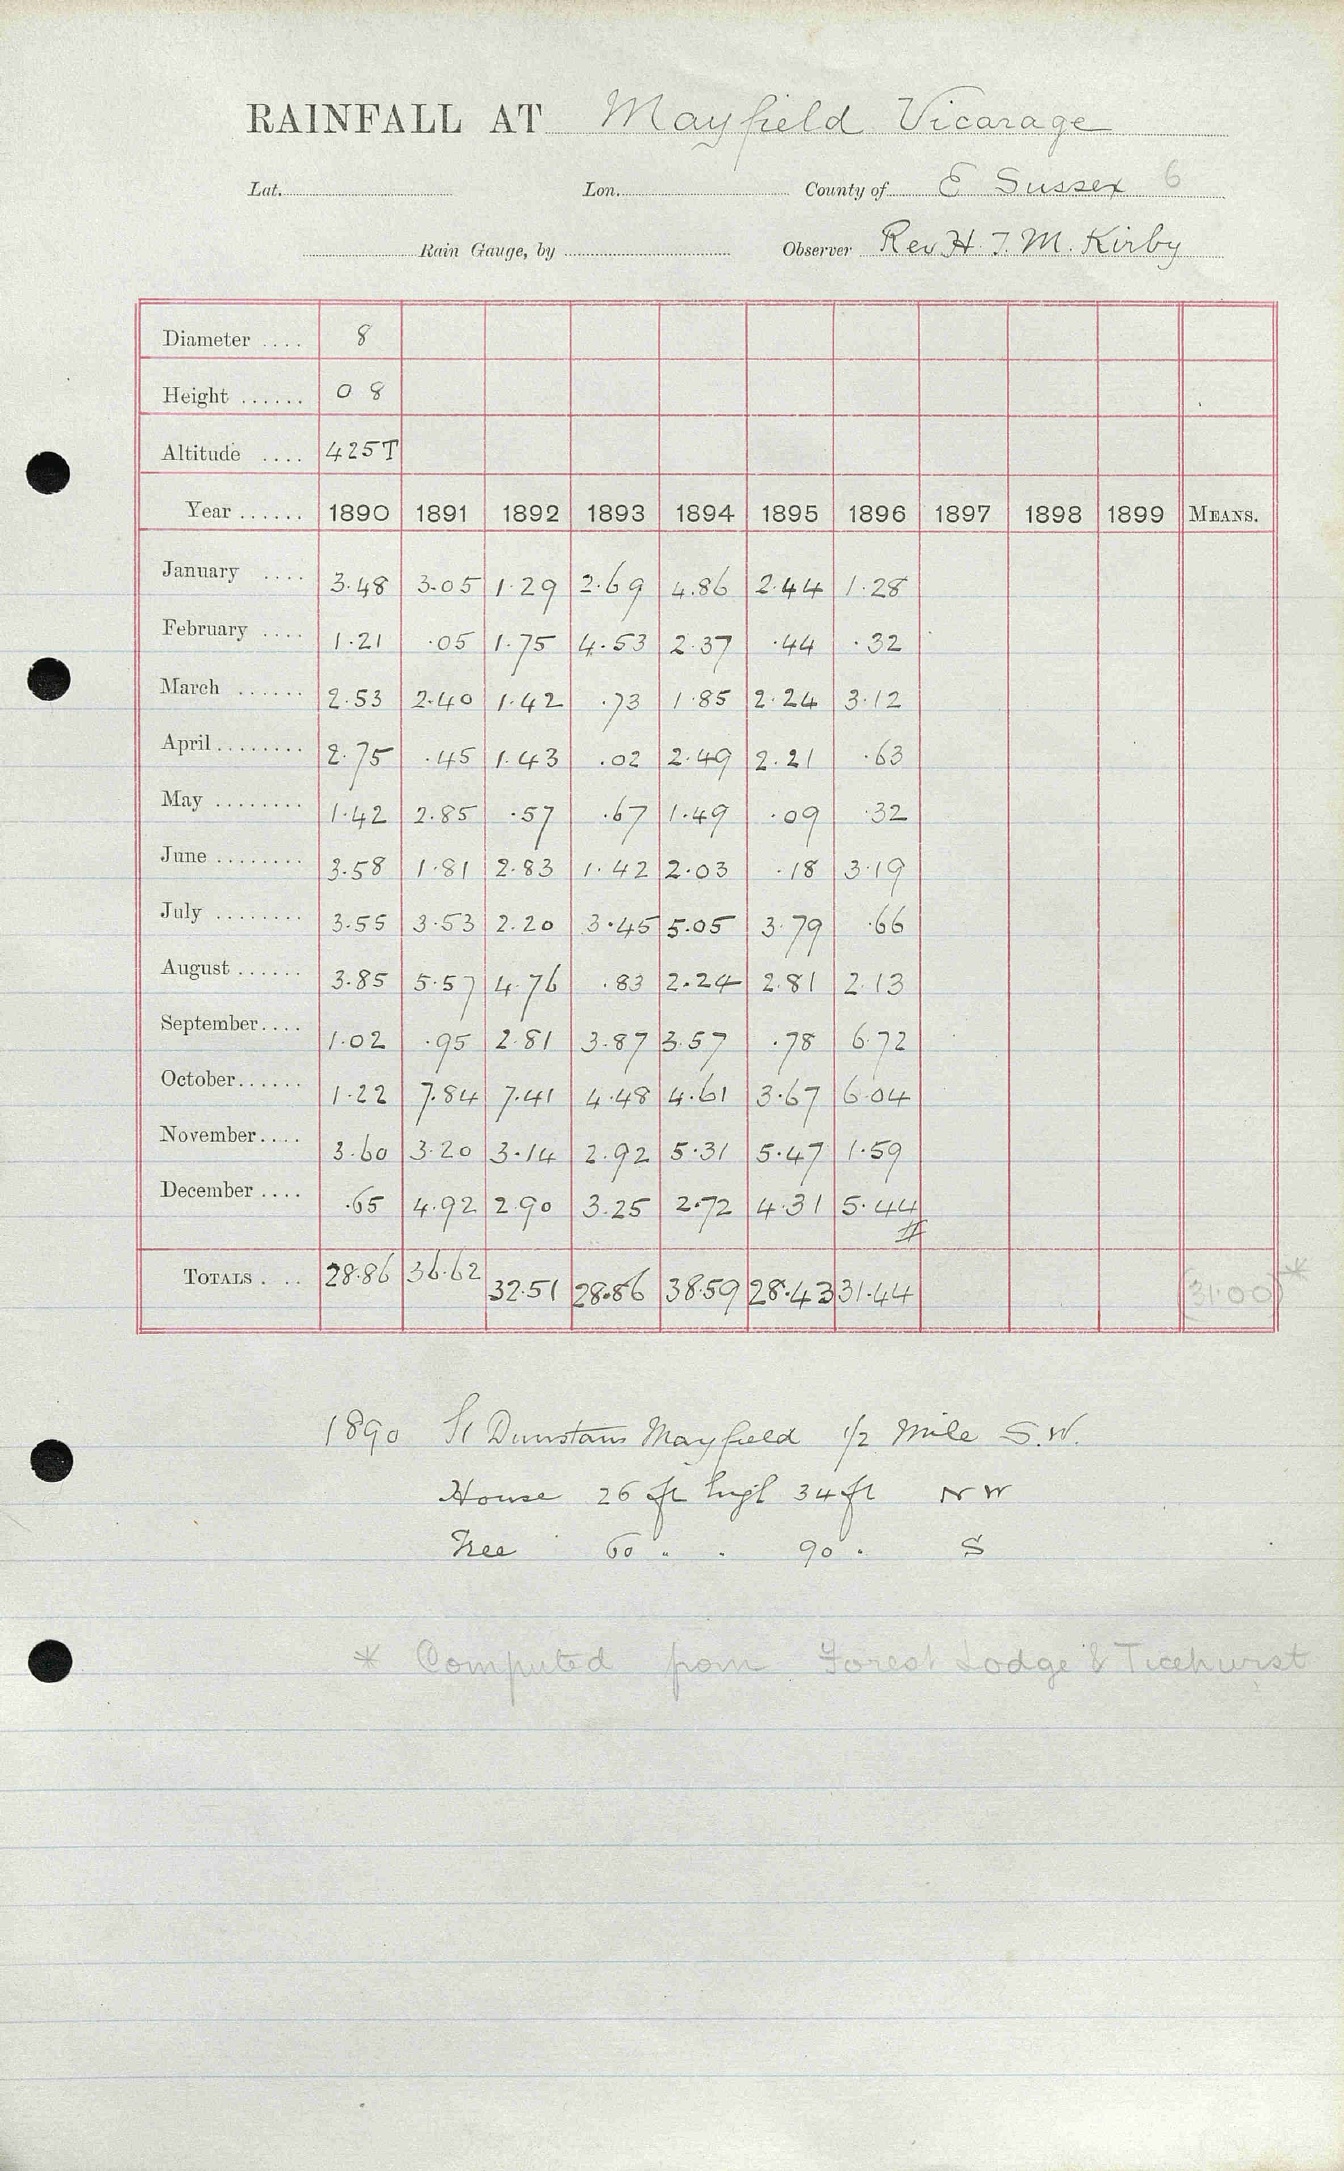 RAINFALL AT Mayfield Vicarage
Lat. Lon. County of E Sussex 6
Rain Gauge, by Observer Rev H. T. M. Kirby
Diameter .... 8
Height ...... 0 8
Altitude .... 425T
Year ...... 1890 1891 1892 1893 1894 1895 1896 1897 1898 1899 MEANS.
January .... 3.48 3.05 1.29 2.69 4.86 2.44 1.28
February .... 1.21 .05 1.75 4.53 2.37 .44 .32
March ...... 2.53 2.40 1.42 .73 1.85 2.24 3.12
April ........ 2.75 .45 1.43 .02 2.49 2.21 .63
May ........ 1.42 2.85 .57 .67 1.49 .09 .32
June ........ 3.58 1.81 2.83 1.42 2.03 .18 3.19
July ........ 3.55 3.53 2.20 3.45 5.05 3.79 .66
August ...... 3.85 5.57 4.76 .83 2.24 2.81 2.13
September.... 1.02 .95 2.81 3.87 3.57 .78 6.72
October...... 1.22 7.84 7.41 4.48 4.61 3.67 6.04
November.... 3.60 3.20 3.14 2.92 5.31 5.47 1.59
December .... .65 4.92 2.90 3.25 2.72 4.31 5.44
TOTALS .... 28.86 36.62 32.51 28.86 38.59 28.43 31.44 (31.00)*
1890 St Dunstans Mayfield 1/2 Mile S.W.
House 26 ft high 34 ft NW
Tree 60 " . 90 . S
* Computed from Forest Lodge & Ticehurst